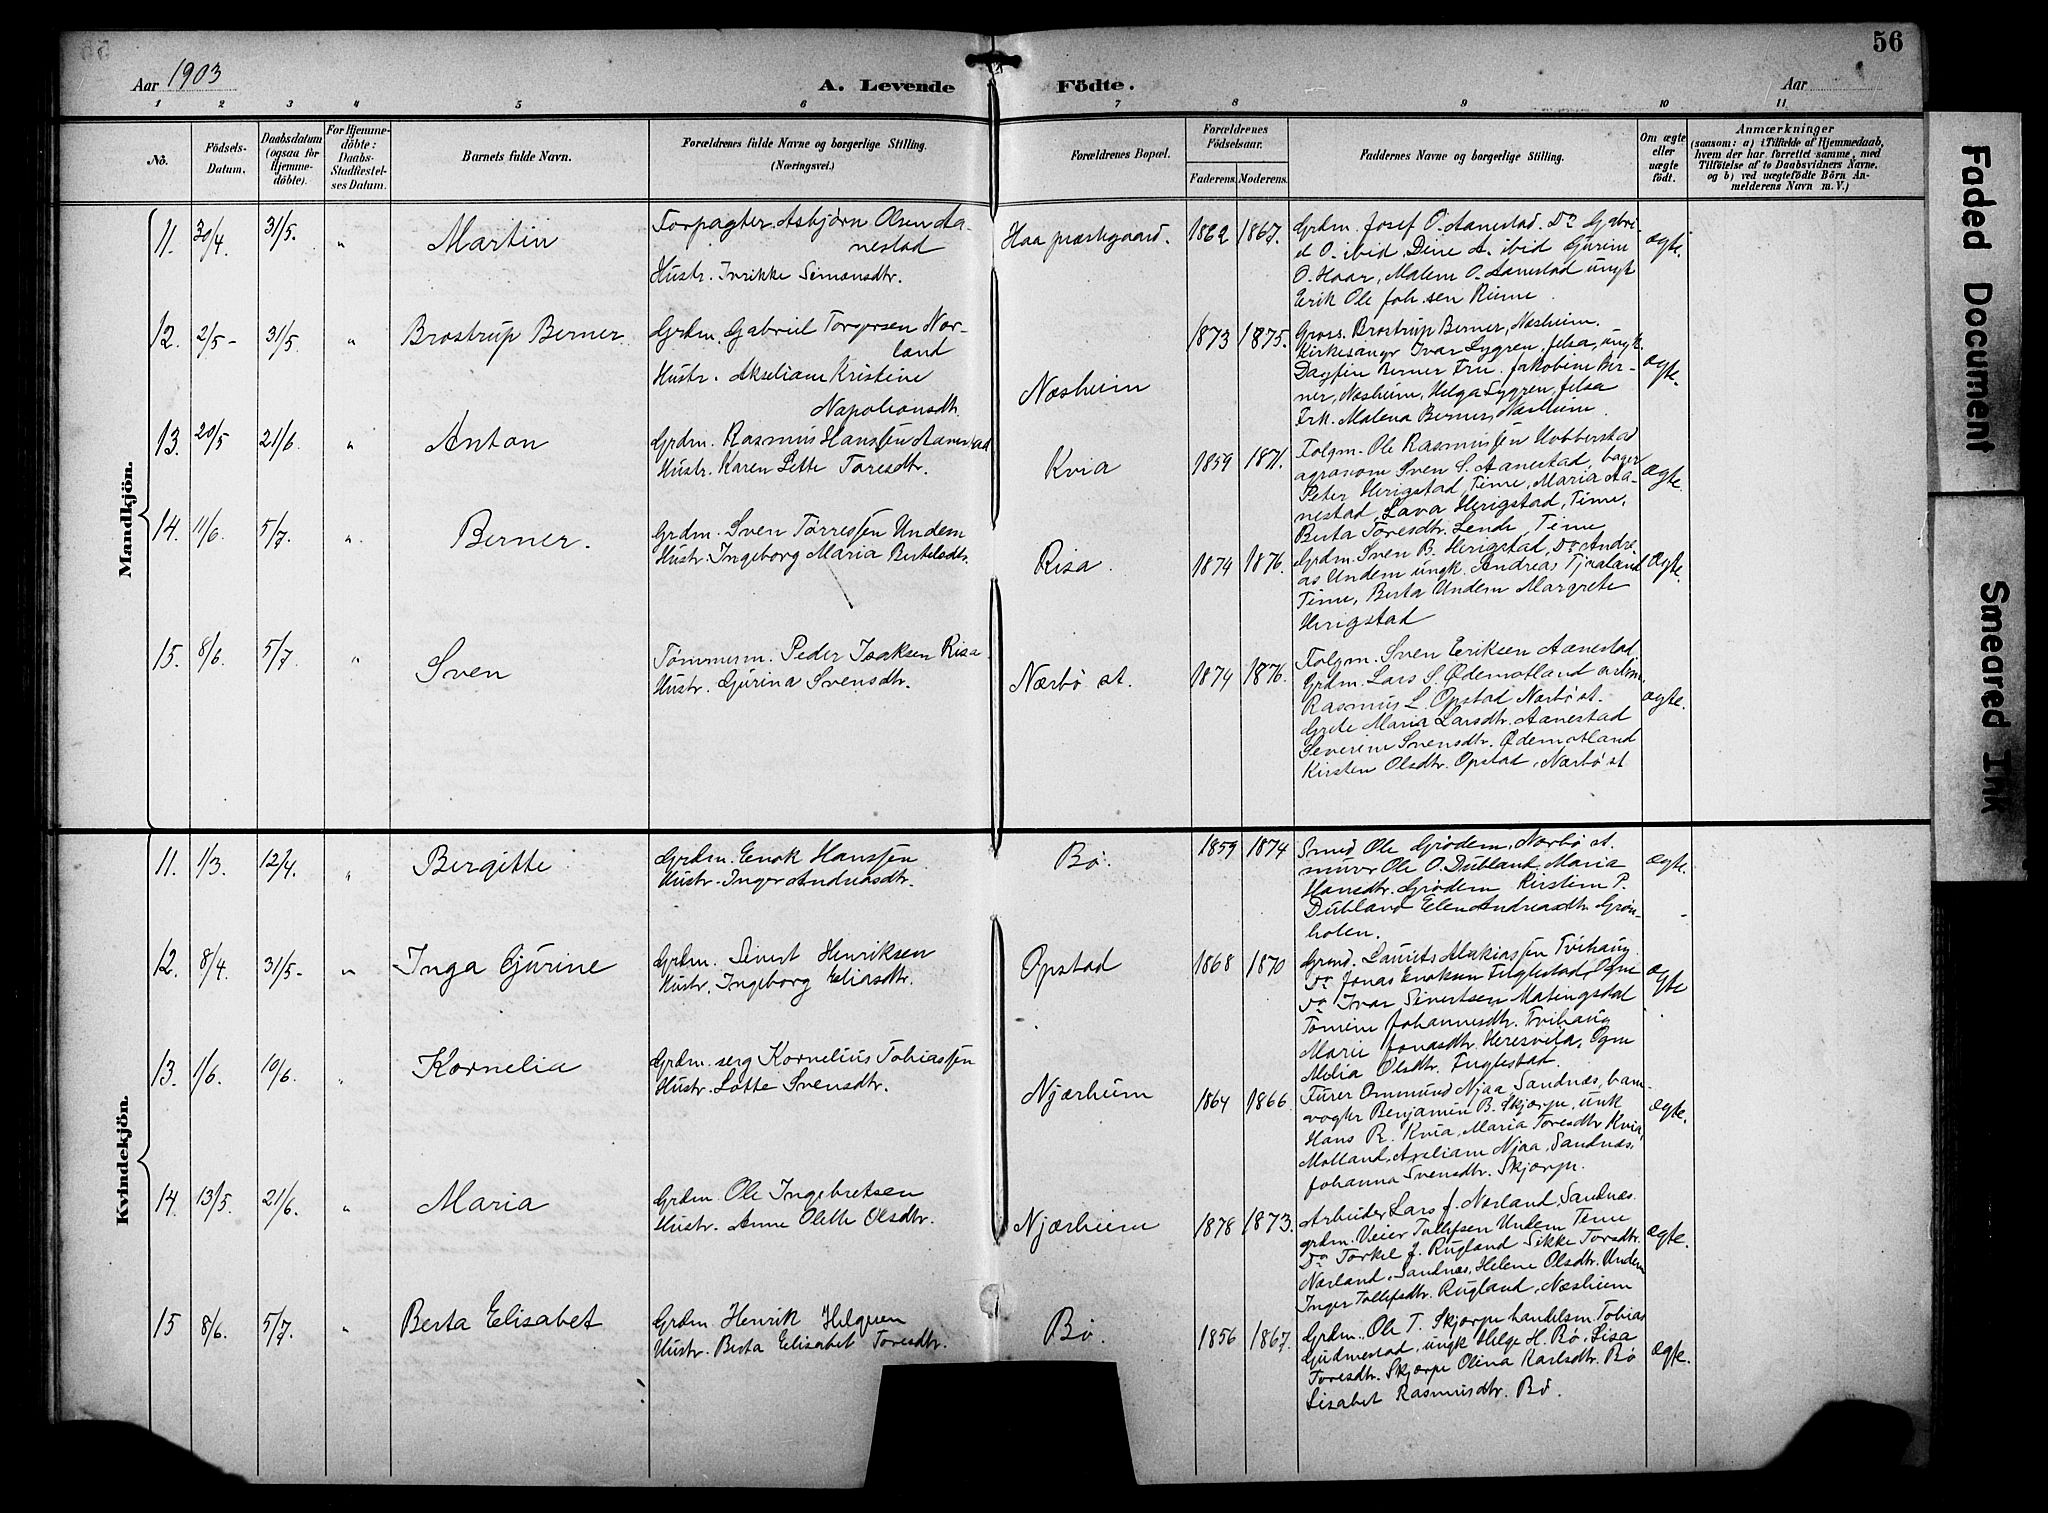 56
Aar 1903
A. Levende Födte.
Aar
1 2 3 4 5 6 7 8 9 10 11
No.
Födsels-Datum.
Daabsdatum (ogsaa for Hjemme-döbte).
For Hjemme-döbte: Daabs-Stadfæstel-ses Datum.
Barnets fulde Navn.
Forældrenes fulde Navne og borgerlige Stilling. (Næringsvei.)
Forældrenes Bopæl.
Forældrenes Födselsaar.
Faderens. Moderens.
Faddernes Navne og borgerlige Stilling.
Om ægte eller uægte födt.
Anmærkninger
(saasom: a) i Tilfælde af Hjemmedaab, hvem der har forrettet samme, med Tilföielse af to Daabsvidners Navne, og b) ved uægtefödte Börn An-melderens Navn m. V.)
Mandkjön.
11. 30/4. 31/5. " Martin
Forpagter Asbjørn Olsen Aa-
nestad
Hustr. Inrikke Simonsdtr.
Haa præstegaard. 1862 1867.
Grdm. Josef O. Aanestad. Do Gabri-
el O. ibid, Dine A. ibid Gjurine
O. Haar, Malene O. Aanestad ungk
Erik Ole Joh.sen Riime.
ægte.
12. 2/5- 31/5. " Brostrup Berner
Grdm. Gabriel Torgersen Nor-
land
Hustr. Akseliane Kristine
Napolionsdtr.
Næsheim 1873 1875.
Gross. Brostrup Berner, Næsheim.
Kirkesangr Ivar Lygren, jelsa, ungk.
Dagfin Berner Fru. Jakobine Ber-
ner, Næsheim, Helga Lygren, jelsa
Frk. Malena Berner, Næsheim.
ægte.
13. 20/5 21/6 " Anton
Grdm. Rasmus Hanssen Aanestad
Hustr. Karen Lette Toresdtr.
Kvia 1859 1871.
Folgm. Ole Rasmussen Hobberstad
agronom Sven S. Aanestad, bager
Peter Herigstad, Time, Maria Aa-
nestad, Lava Herigstad, Time,
Berta Toresdtr. Lende Time
ægte.
14. 11/6. 5/7. " Berner.
Grdm. Sven Tørressen Undem
Hustr. Ingeborg Maria Bertelsdtr.
Risa. 1874 1876.
Grdm. Sven B. Herigstad, Do Andre-
as Undem ungk. Andreas Tjaaland
Time, Berta Undem Margrete
Herigstad
ægte
15. 8/6. 5/7 " Sven
Tømmerm. Peder Isaksen Risa.
Hustr. Gjurina Svensdtr.
Nærbø st. 1874 1876.
Folgm. Sven Eriksen Aanestad
Grdm. Lars S. Ødemotland
Rasmus L. Opstad Nærbø st.
Grete Maria Larsdtr. Aanestad
Severine Svensdtr. Ødemotland
Kirsten Olsdtr. Opstad, Nærbø st
ægte.
Kvindekjön.
11. 1/3. 12/4. " Bergitte
Grdm. Enok Hanssen
Hustr. Inger Andreasdtr.
Bø. 1859 1874
Smed Ole Grødem, Nærbø st.
murer Ole O. Dubland, Maria
Hansdtr. Grødem Kirstine P.
Dubland Elen Andreasdtr. Grøn-
holen.
ægte.
12. 8/4. 31/5- " Inga Gjurine
Grdm. Sivert Henriksen
Hustr. Ingeborg Eliasdtr.
Opstad 1868 1870
Grmd. Laurits Malkiassen Tvihaug
Do Jonas Enoksen Fuglestad, Ogne
Do Ivar Sivertsen Matingsdal
Tomine Johannesdtr. Tvihaug
Marie Jonasdtr. Heresvila, Ogne
Melia Olsdtr. Fuglestad.
ægte
13. 1/6. 10/6. " Kornelia
Grdm. serg Kornelius Tobiassen
Hustr. Lotte Svensdtr.
Njærheim 1864 1866
Furer Ommund Njaa, Sandnæs, ban-
vogter Benjamin B. Skjærpe, unk
Hans R. Kvia, Maria Toresdtr Kvia,
Motland, Axeliane Njaa, Sandnæs,
Johanna Svensdtr. Skjærpe.
ægte.
14. 13/5. 21/6. " Maria
Grdm. Ole Ingebretsen
Hustr. Anne Olette Olsdtr.
Njærheim 1878 1873.
Arbeider Lars J. Nærland, Sandnæs.
grdm. Veier Tollefsen Undem Time
Do Torkel J. Rugland Sikke Toresdtr.
Nærland, Sandnæs, Helene Olsdtr. Undem
Inger Tollefsdtr. Rugland, Næsheim
ægte.
15 8/6. 5/7. " Berta Elisabet
Grdm. Henrik Helgesen
Hustr. Berta Elisabet Toresdtr.
Bø. 1856 1867.
Grdm. Ole T. Skjærpe handelsm. Tobias
Gudmestad, ungk Helge H. Bø, Lisa
Toresdtr. Skjærpe Olina Karlsdtr. Bø
Lisabet Rasmusdtr. Bø.
ægte.
Faded Document
Smeared Ink